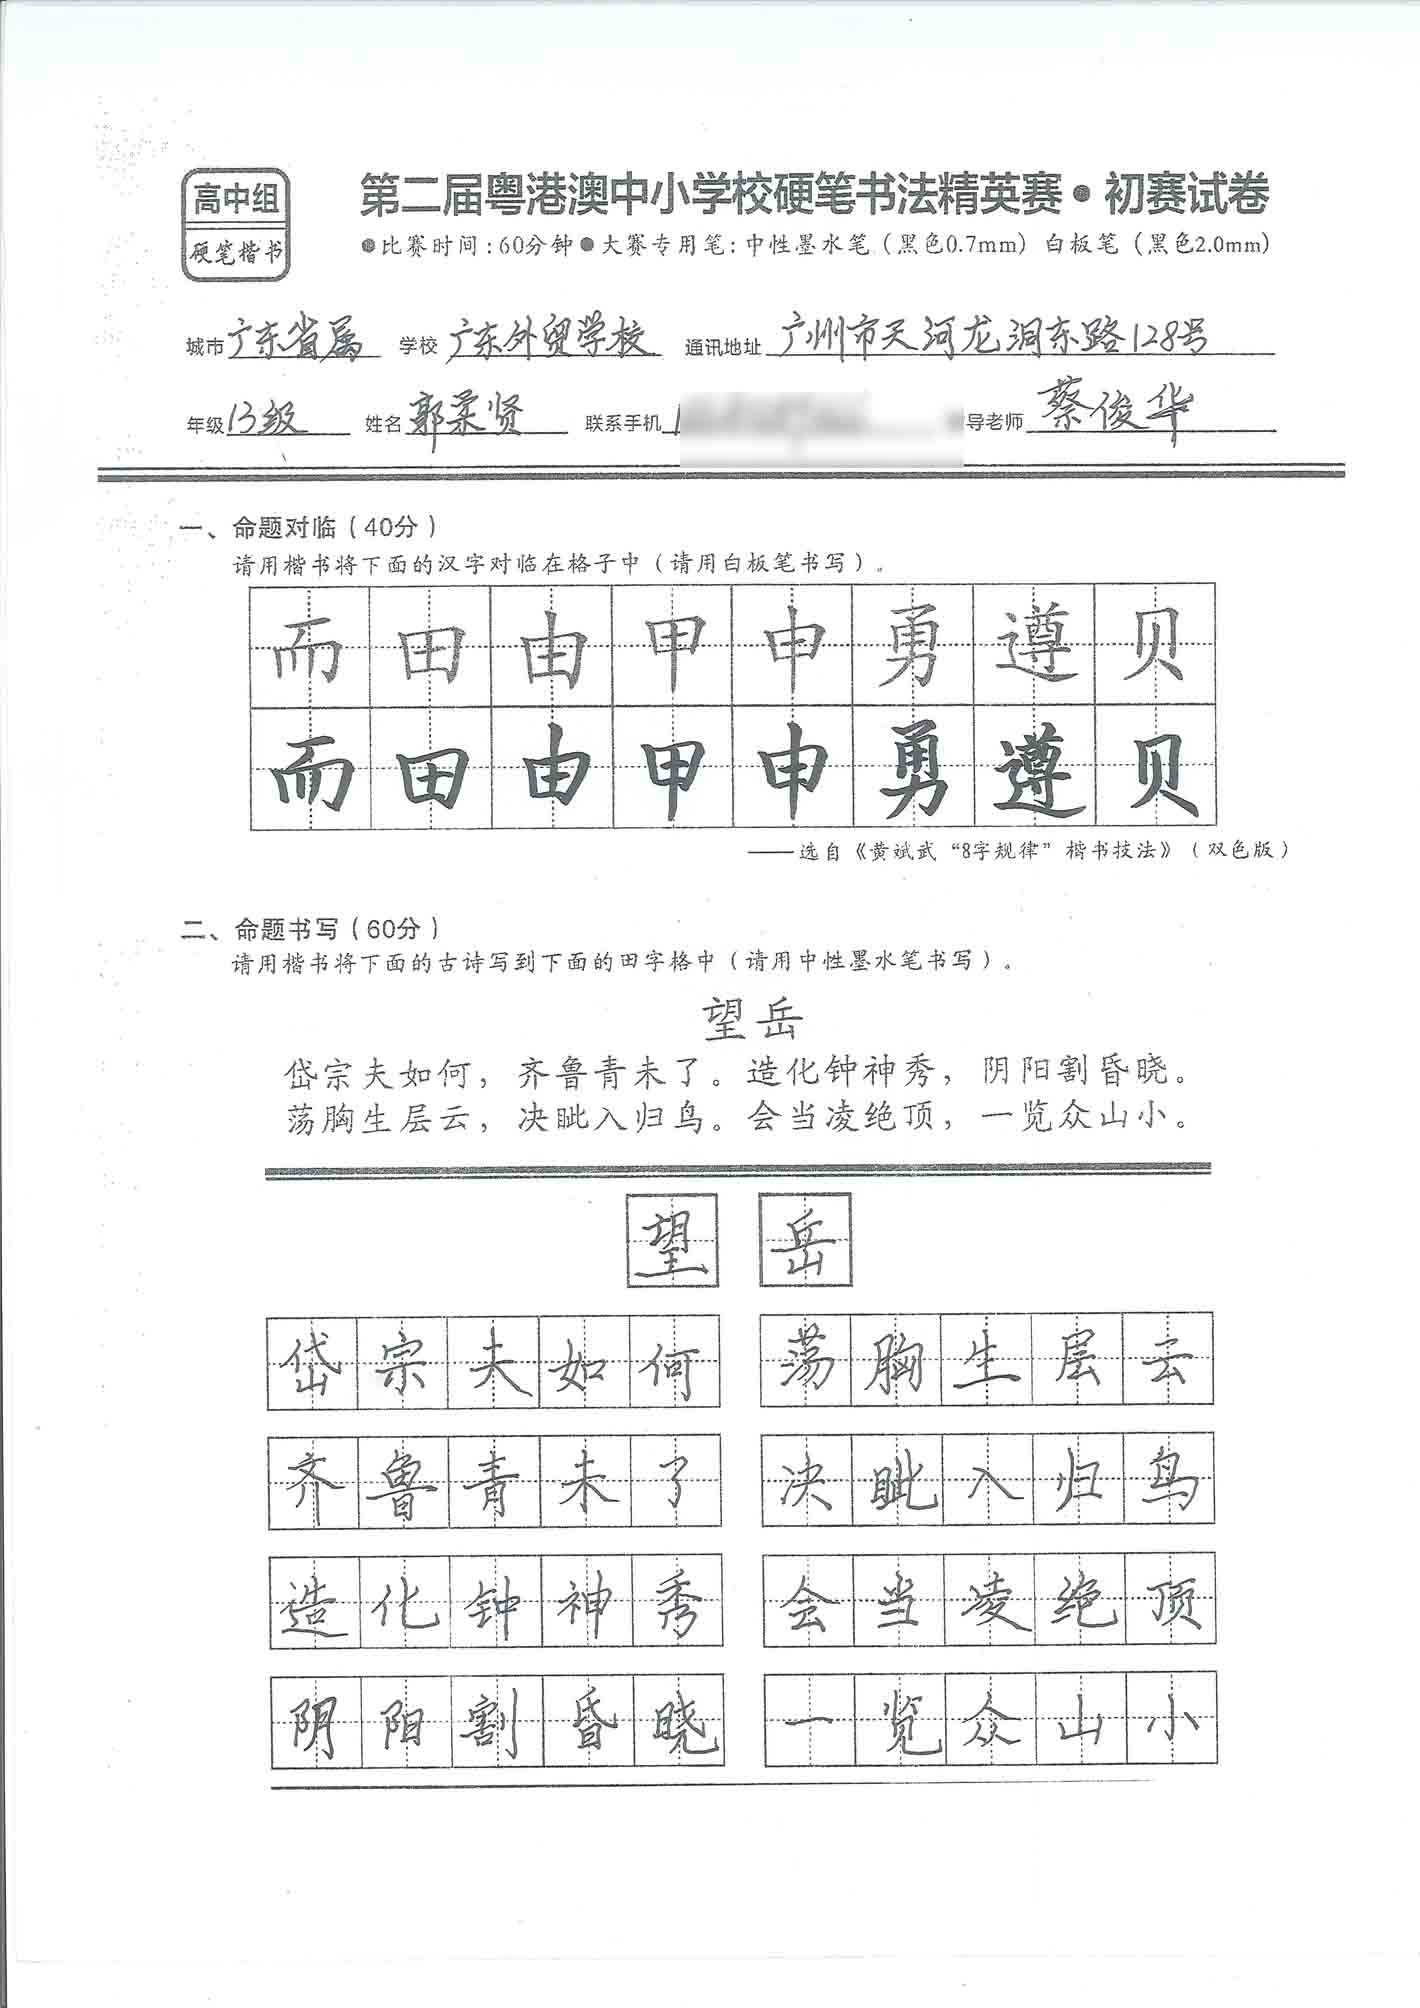 高中组
硬笔楷书
第二届粤港澳中小学校硬笔书法精英赛·初赛试卷
●比赛时间:60分钟●大赛专用笔:中性墨水笔(黑色0.7mm) 白板笔(黑色2.0mm)
城市 广东省属 学校 广东外贸学校 通讯地址 广州市天河龙洞东路128号
年级 13级 姓名 郭柔贤 联系手机 导老师 蔡俊华
一、命题对临(40分)
请用楷书将下面的汉字对临在格子中(请用白板笔书写)。
而田由甲申勇遵贝
而田由甲申勇遵贝
——选自《黄斌武“8字规律”楷书技法》(双色版)
二、命题书写(60分)
请用楷书将下面的古诗写到下面的田字格中(请用中性墨水笔书写)。
望岳
岱宗夫如何,齐鲁青未了。造化钟神秀,阴阳割昏晓。
荡胸生层云,决眦入归鸟。会当凌绝顶,一览众山小。
望岳
岱宗夫如何 荡胸生层云
齐鲁青未了 决眦入归鸟
造化钟神秀 会当凌绝顶
阴阳割昏晓 一览众山小